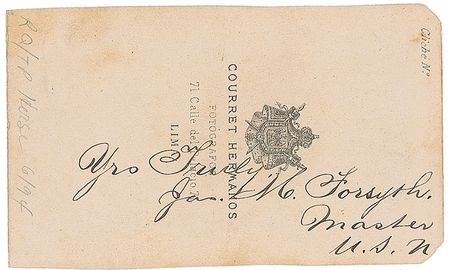 Cliché Nº
COURRET HERMANOS
FOTÓGRAFOS
71 Calle de
LIMA
Yrs Truly
Jas. M. Forsyth.
Master
U.S.N
Morse 6/94